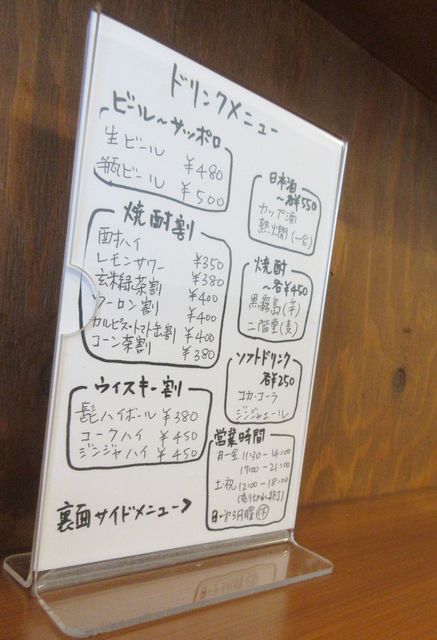 ドリンクメニュー
ビール～サッポロ
生ビール ¥480
瓶ビール ¥500
焼酎割
酎ハイ ¥350
レモンサワー ¥380
玄米緑茶割 ¥400
ウーロン割 ¥400
カルピス・トマト缶割 ¥400
コーン茶割 ¥380
ウイスキー割
髭ハイボール ¥380
コークハイ ¥450
ジンジャハイ ¥450
裏面サイドメニュー>
日本酒
～各¥550
カップ酒
熱燗(一合)
焼酎
～各¥450
黒霧島(芋)
二階堂(麦)
ソフトドリンク
各¥250
コカ・コーラ
ジンジャエール
営業時間
月-金 11:30-14:00
17:00-21:00
土・祝 12:00-18:00
日・第3月曜